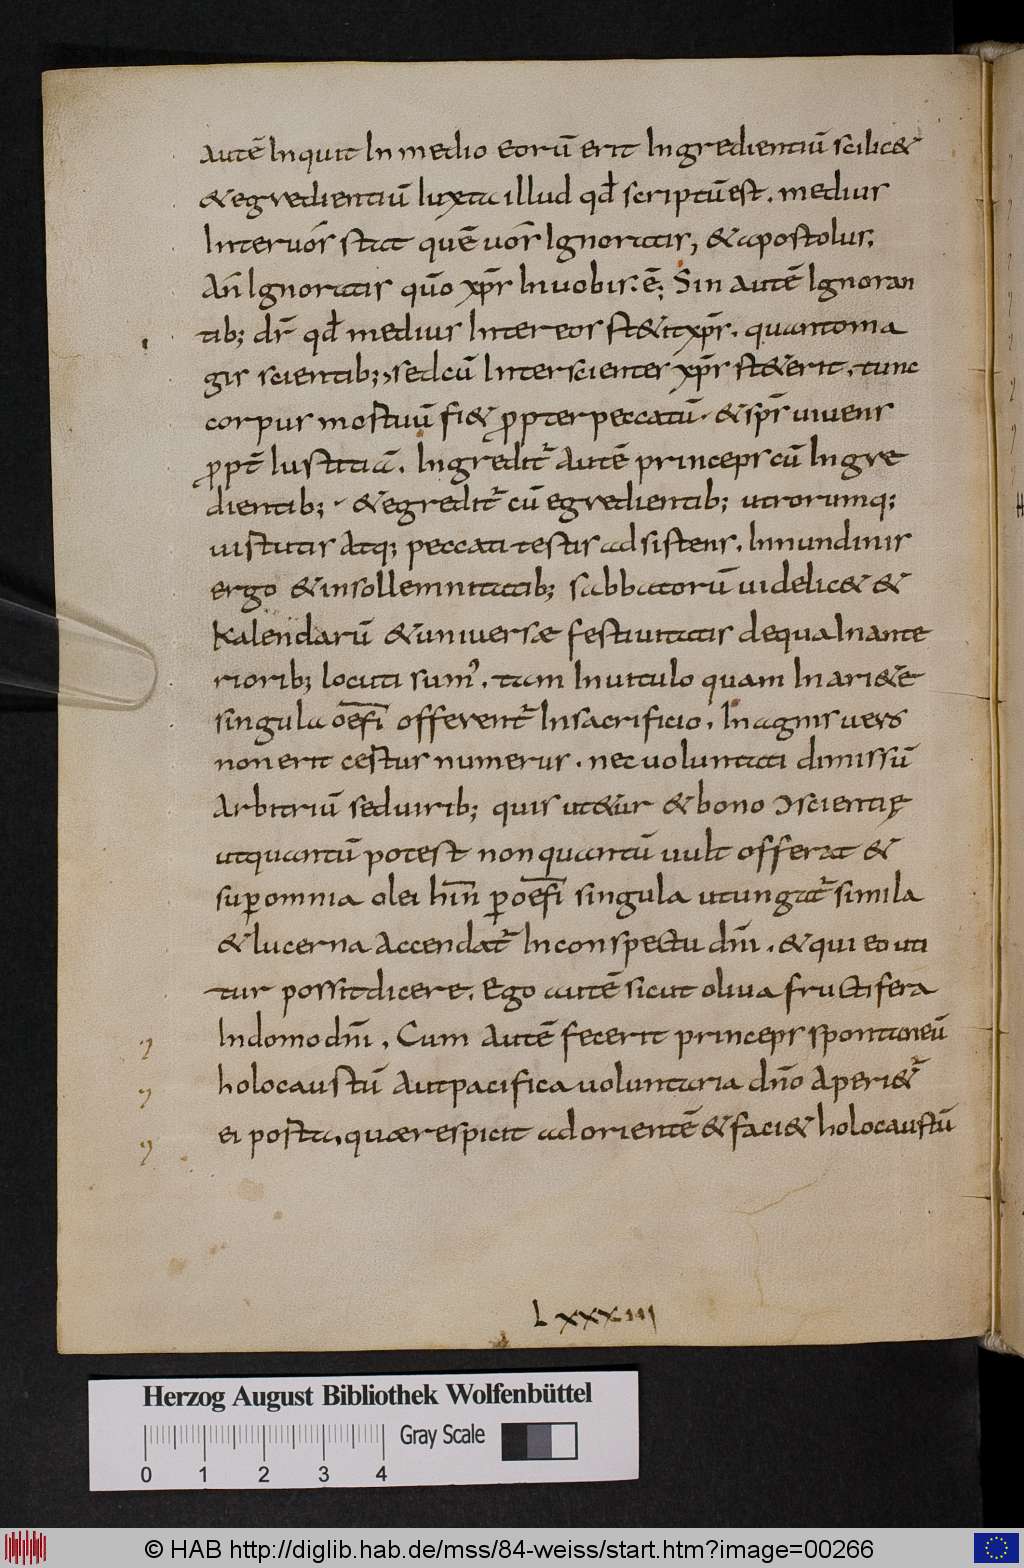 autē Inquit In medio eorū erit Ingredientiū scilic&
& egredientiū Iuxta illud qđ scriptū est. medius
Inter uōs stat quē uōs Ignoratis, & apostolus.
An̄ Ignoratis qūo xp̄s In uobis. ē; Sin autē Ignoran
tib; dr̄ qđ medius Inter eos st&it xp̄s. quanto ma
gis scientib;, sed cū Inter scientes xp̄s st&erit, tunc
corpus mortuū fi& ꝓpter peccatū. & sp̄s uiuens
ꝓpt̄ Iustitiā. Ingredit̄ autē princeps cū Ingre
dientib; . & egredit̄ cū egredientib; utrorumq;
uirtutis atq; peccati testis adsistens. In nundinis
ergo & in sollemnitatib; sabbatorū uidelic& &
Kalendarū & uniuersæ festiuitatis de qua In ante
riorib; locuti sum'. tam In uitulo quam In ari&ē
singula oēfi offerent̄ In sacrificio. In agnis uero
non erit certus numerus. nec uoluntati dimissū
arbitriū sed uirib; quis ut&ur & bono ɔscientię
ut quantū potest non quantū uult offerat &
suꝑ omnia olei hīn ꝑ oēfi singula ut ungat̄ simila
& lucerna accendat̄ In conspectu dn̄i. & qui eo uti
tur possit dicere. Ego autē sicut oliua fructifera
In domo dn̄i. Cum autē fecerit princeps spontaneū
holocaustū aut pacifica uoluntaria dn̄o aperi&̄
ei porta, quæ respicit ad orientē & faci& holocaustū
Lxxxiii
Herzog August Bibliothek Wolfenbüttel
Gray Scale
0 1 2 3 4
© HAB http://diglib.hab.de/mss/84-weiss/start.htm?image=00266